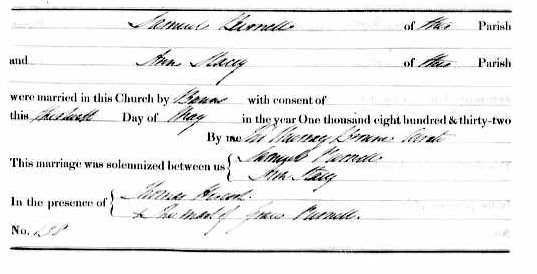 Samuel Purnell of this Parish
and Ann Stacey of this Parish
were married in this Church by Banns with consent of
this Day of May in the year One thousand eight hundred & thirty-two
By me Murray Browne Curate
This marriage was solemnized between us { Samuel Purnell
Ann Stacy
In the presence of { Thomas
& The mark of Grace Purnell
No. 158